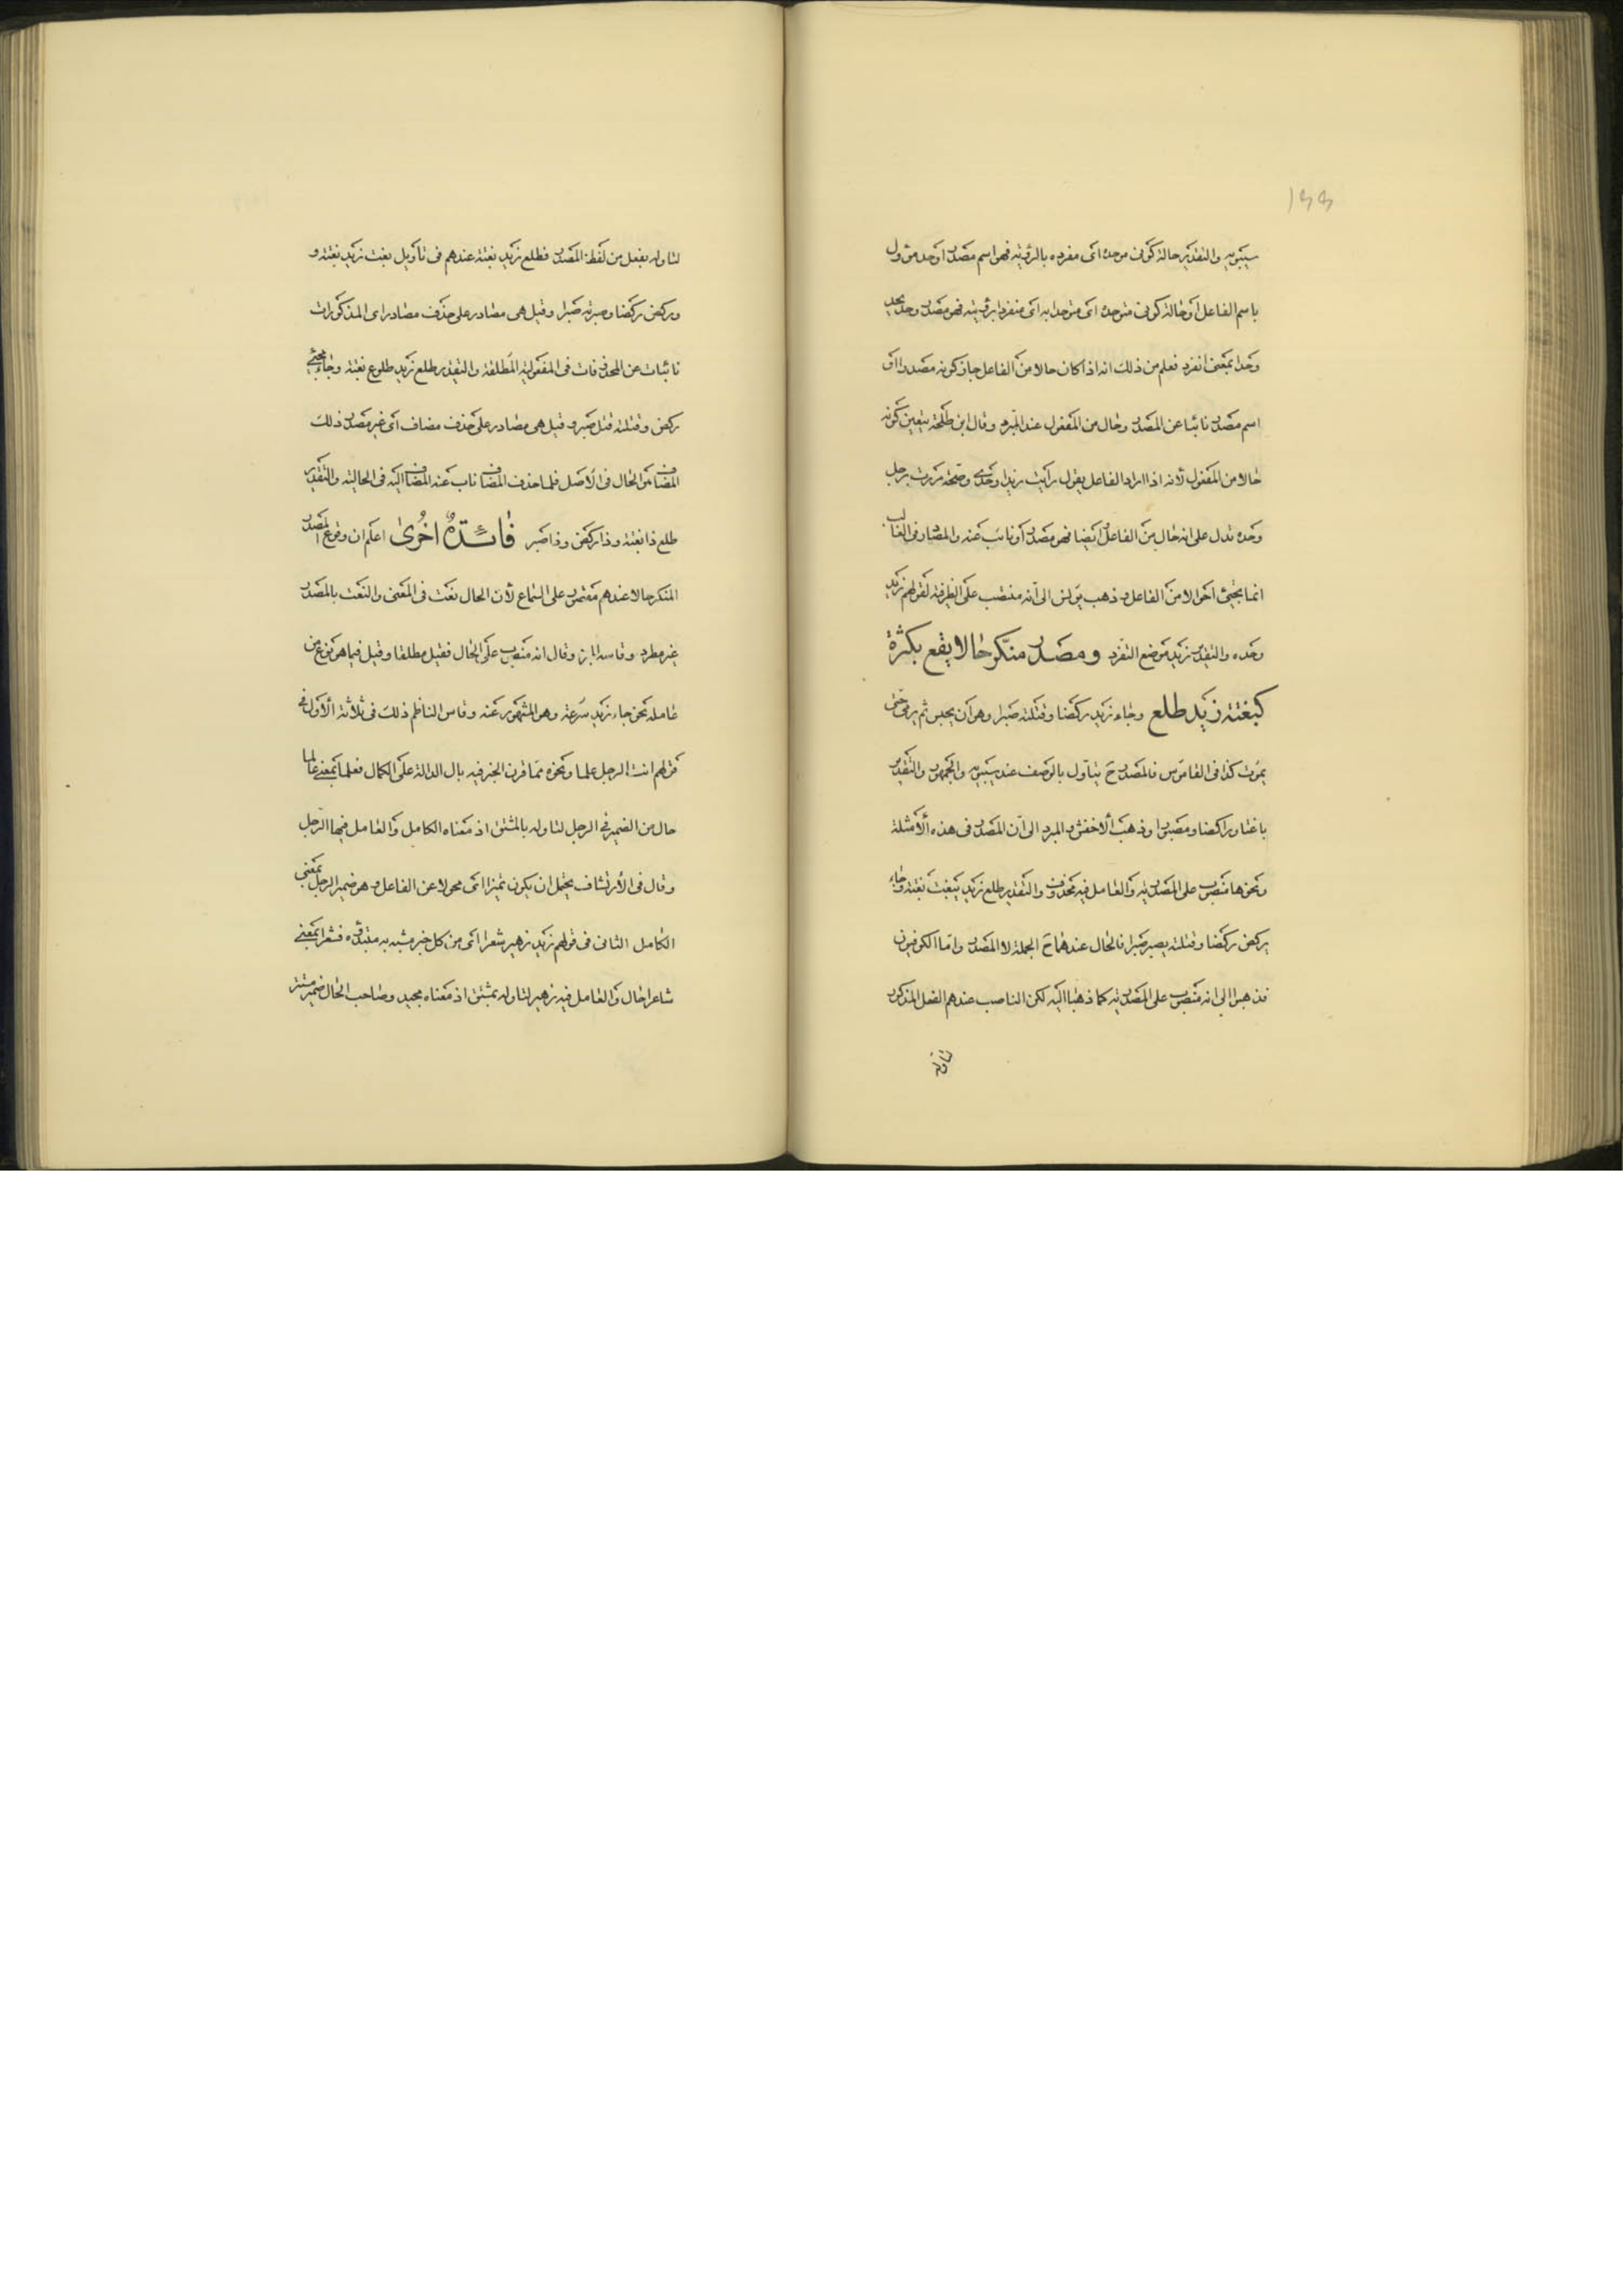 ١٣٣
سيبويه والتقدير حالة كونى موحده اى مفرده بالرؤية فهو اسم مصدر اوحد مئول
باسم الفاعل او حالة كونى متوحدا به اى منفردا برؤيته فهو مصدر وحد يحد
وحدا بمعنى انفرد فعلم من ذلك انه اذا كان حالا من الفاعل جاز كونه مصدرا او
اسم مصدر نائبا عن المصدر وحال من المفعول عند المبرد وقال ابن طلحة يتعين كونه
حالا من المفعول لأنه اذا اراد الفاعل يقول رأيت زيدا وحدى وصحة مررت برجل
وحده تدل على انه حال من الفاعل ايضا فهو مصدر او نائب عنه والمصادر فى الغالب
انما يجئ احوالا من الفاعل و ذهب يونس الى انه منتصب على الظرفية لقولهم زيد
وحده والتقدير زيد موضع التفرد ومصدر منكر حالا يقع بكثرة
كبغتة زيد طلع وجاء زيد ركضا وقتلته صبرا وهو ان يحبس ثم يرمى حتى
يموت كذا فى القاموس فالمصدر ح يتأول بالوصف عند سيبويه والجمهور والتقدير
باغتا وراكضا ومصبورا وذهب الاخفش والمبرد الى ان المصدر فى هذه الأمثلة
ونحوها منصوب على المصدرية والعامل فيه محذوف والتقدير طلع زيد يبغت بغتة وجاء
يركض ركضا وقتلته يصبر صبرا فالحال عندهما ح الجملة لا المصدر واما الكوفيون
فذهبوا الى انه منصوب على المصدرية كما ذهبا اليه لكن الناصب عندهم الفعل المذكور
لتاوله
لتاوله بفعل من لفظ المصدر فطلع زيد بغتة عندهم فى تأويل بغت زيد بغتة و
وركض ركضا وصبرته صبرا وقيل هى مصادر على حذف مصادر اى المذكورات
نائبات عن المحذوفات فى المفعولية المطلقة والتقدير طلع زيد طلوع بغتة وجاء مجئ
ركض وقتلته قتل صبر و قيل هى مصادر على حذف مضاف اى غير مصدر ذلك
المضاف من الحال فى الاصل فلما حذف المضاف ناب عنه المضاف اليه فى الحالية والتقدير
طلع ذا بغتة وذا ركض وذا صبر فائدة اخرى اعلم ان وقوع المصدر
المنكر حالا عندهم مقصور على السماع لأن الحال نعت فى المعنى والنعت بالمصدر
غير مطرد وقاسه المبرد وقال انه منصوب على الحال فقيل مطلقا وقيل فيما هو نوع من
عامله نحو جاء زيد سرعة وهو المشهور عنه وقاس الناظم ذلك فى ثلاثة الأول فى
قولهم انت الرجل علما ونحوه مما قرن الخبر فيه بال الدالة على الكمال فعلما بمعنى عالما
حال من الضمير فى الرجل لتاوله بالمشتق اذ معناه الكامل والعامل فيها الرجل
وقال فى الأرتشاف يحتمل ان يكون تميزا اى محولا عن الفاعل و هو ضمير الرجل بمعنى
الكامل الثانى فى قولهم زيد زهير شعرا اى من كل خبر مشبه به مبتدؤه فشعرا بمعنى
شاعرا حال والعامل فيه زهير لتاوله بمشتق اذ معناه مجيد وصاحب الحال ضمير مستتر